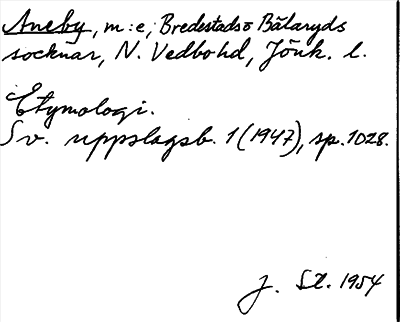 Aneby, m:e, Bredestads o Bälaryds
socknar, N. Vedbohd, Jönk. l.
Etymologi.
Sv. uppslagsb. 1 (1947), sp. 1028.
J. St. 1954